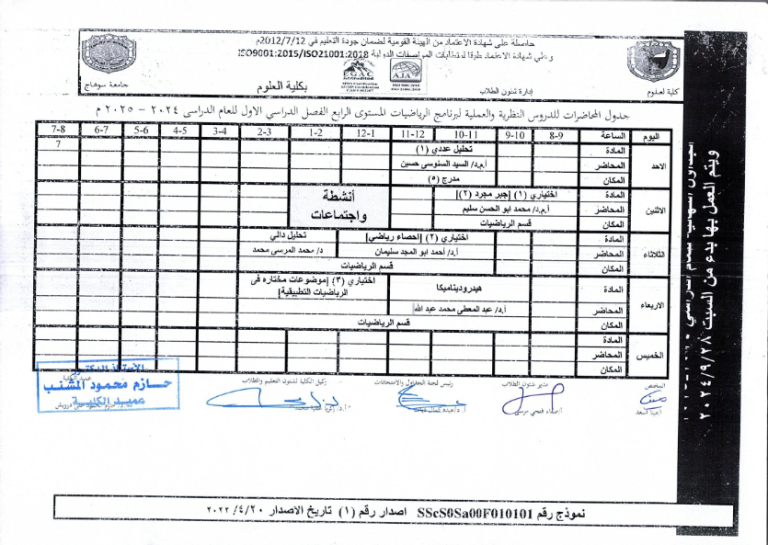 حاصلة على شهادة الاعتماد من الهيئة القومية لضمان جودة التعليم في 2012/7/12م
وعلى شهادة الاعتماد طبقا لمتطلبات المواصفات الدولية ISO9001:2015/ISO21001:2018
EGAC
AJA
جامعة سوهاج
بكلية العلوم
إدارة شئون الطلاب
كلية العلوم
جدول المحاضرات للدروس النظرية والعملية لبرنامج الرياضيات المستوى الرابع الفصل الدراسي الاول للعام الدراسى ٢٠٢٤ - ٢٠٢٥ م
اليوم الساعة 8-9 9-10 10-11 11-12 12-1 1-2 2-3 3-4 4-5 5-6 6-7 7-8
الاحد
المادة تحليل عددي (١) 7
المحاضر أ.م.د/ السيد السنوسى حسين
المكان مدرج (٥)
الاثنين
المادة اختياري (١) [جبر مجرد (٢)]
المحاضر أ.م.د/ محمد ابو الحسن سليم
المكان قسم الرياضيات
أنشطة
واجتماعات
الثلاثاء
المادة اختياري (٢) [احصاء رياضي] تحليل دالي
المحاضر أ.د/ أحمد ابو المجد سليمان د/ محمد المرسى محمد
المكان قسم الرياضيات
الاربعاء
المادة هيدروديناميكا اختياري (٣) [موضوعات مختاره فى
الرياضيات التطبيقية]
المحاضر أ.د/ عبد المعطي محمد عبد الله
المكان قسم الرياضيات
الخميس
المادة
المحاضر
المكان
المختص
مدير شئون الطلاب
رئيس لجنة الجداول والامتحانات
وكيل الكلية لشئون التعليم والطلاب
الأستاذ الدكتور
حازم محمود المشنب
عميد الكلية
ويتم العمل بها بدء من السبت ٢٠٢٤/٩/٢٨
نموذج رقم SScS0Sa00F010101 اصدار رقم (١) تاريخ الاصدار ٢٠٢٢/٤/٢٠